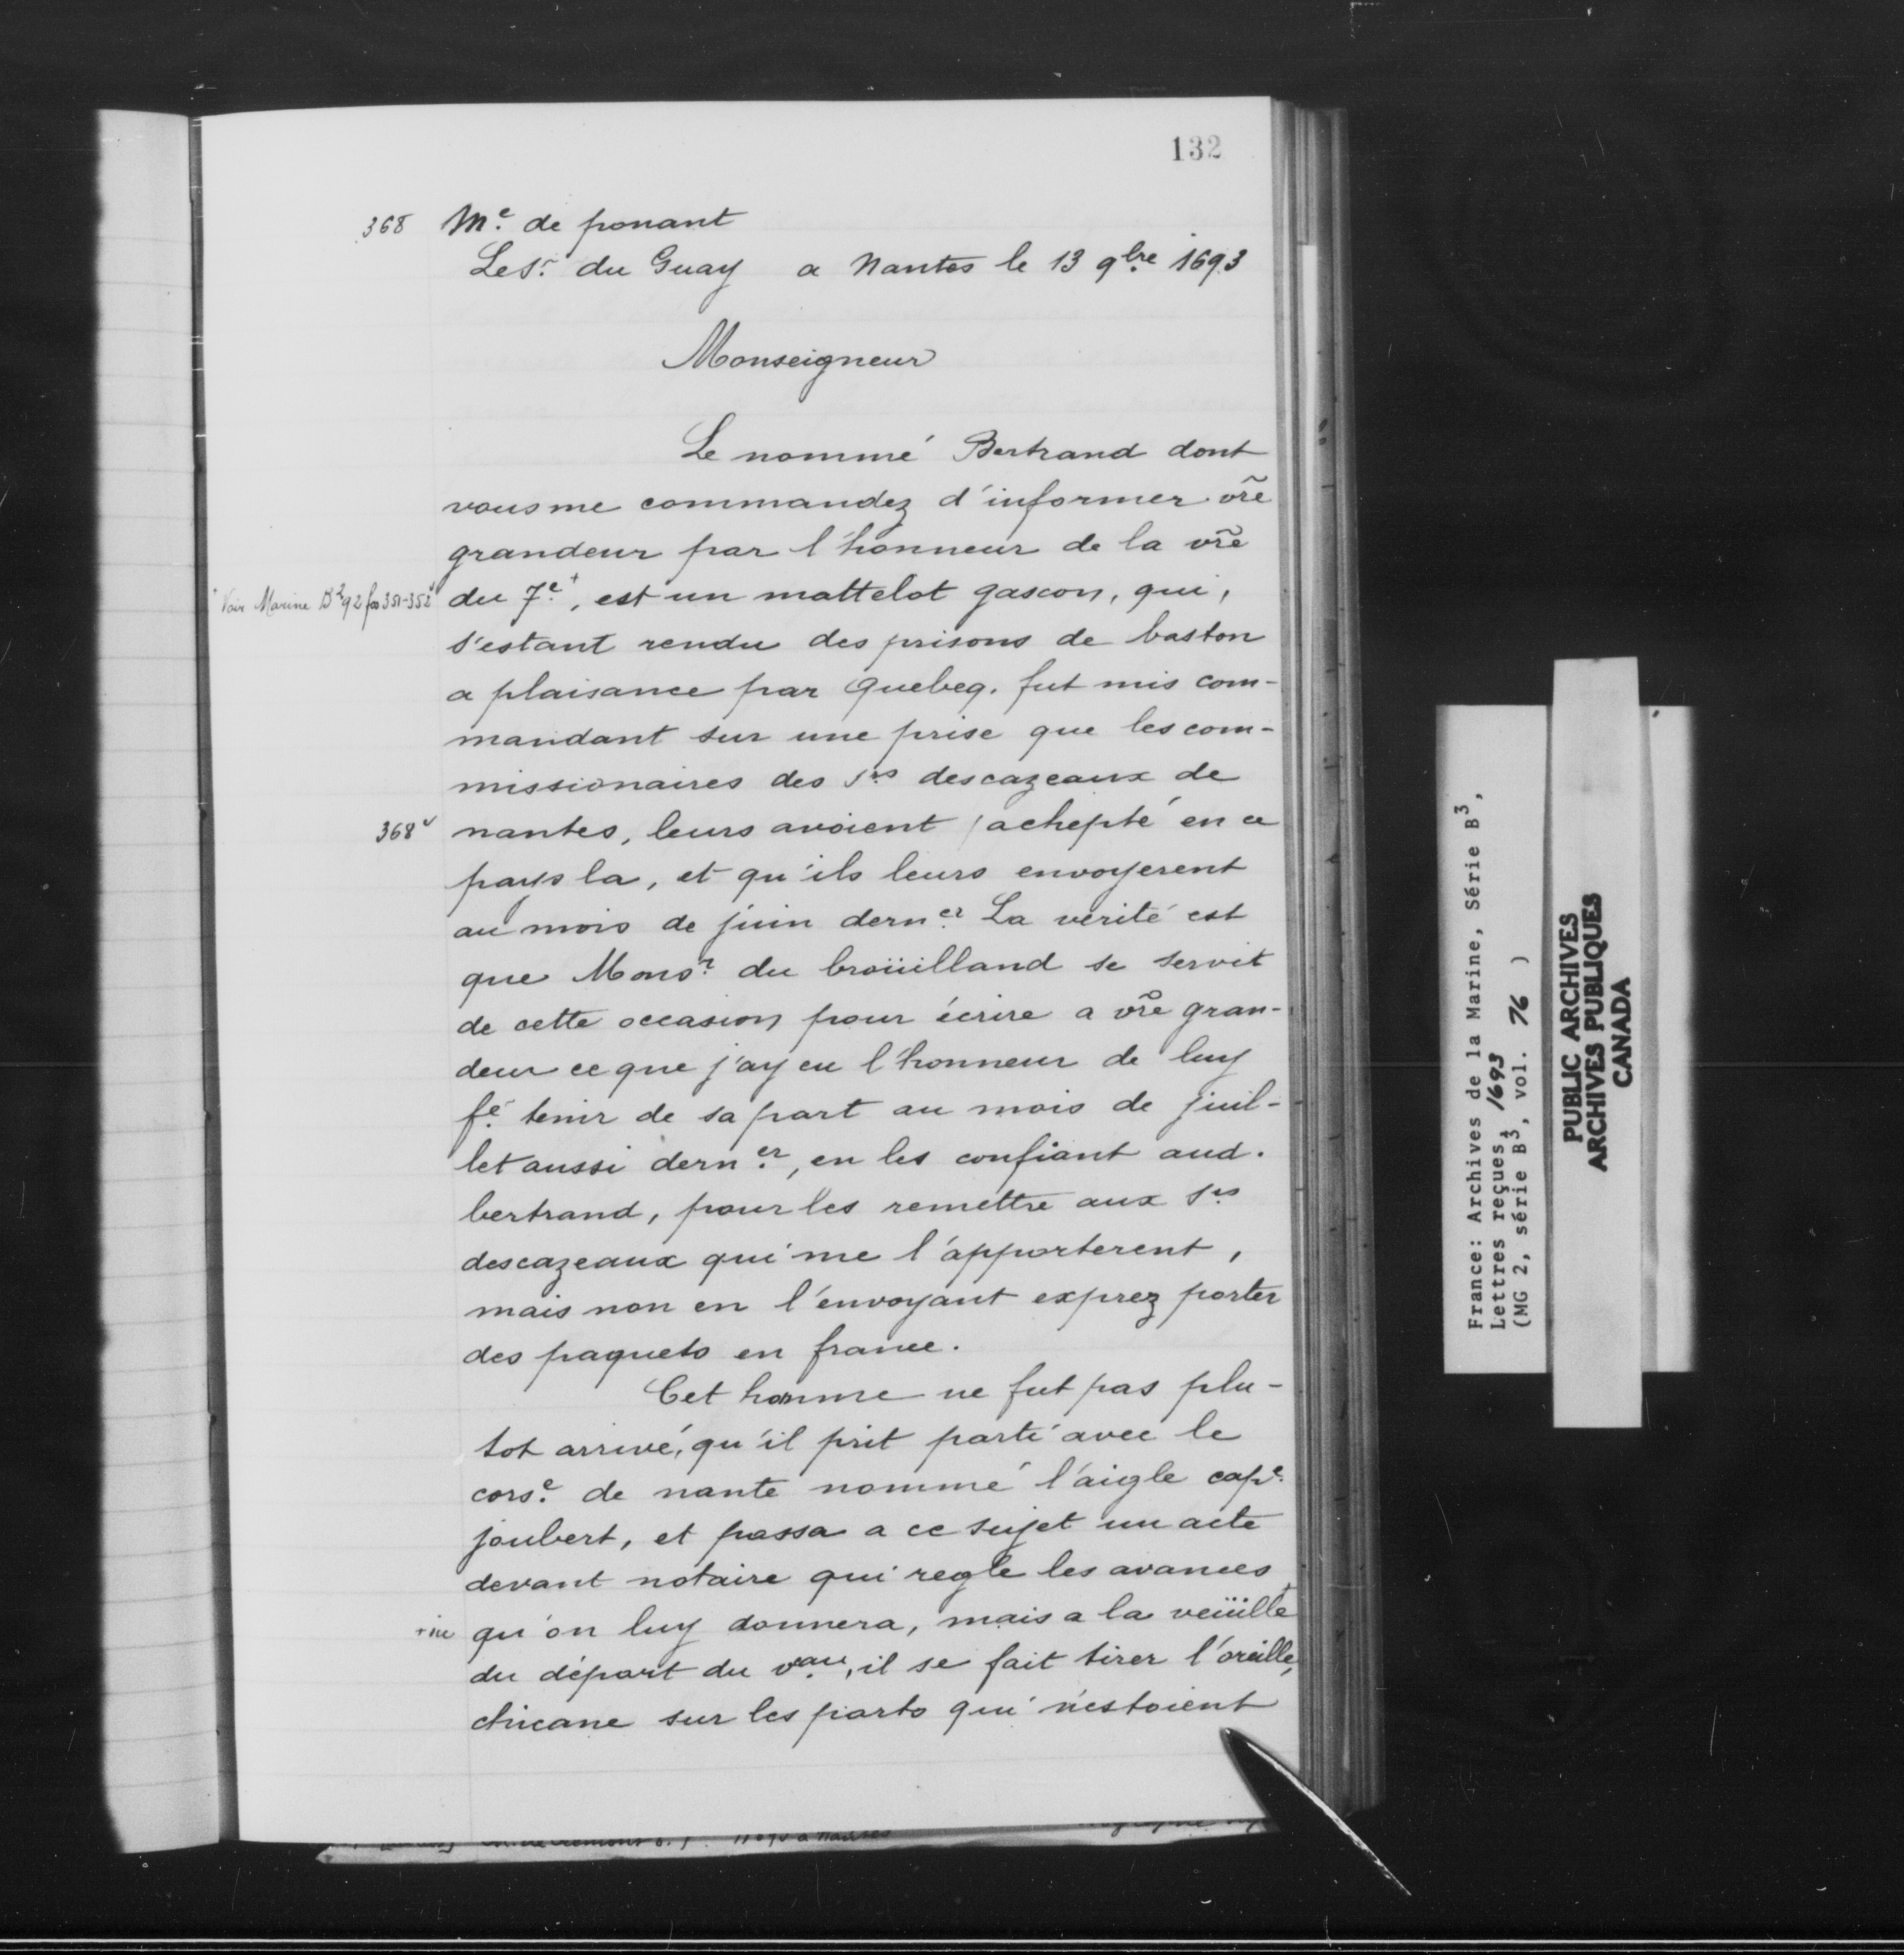 132
368 Me. de ponant
Le Sr. du Guay a Nantes le 13 9bre 1693
Monseigneur
Le nommé Bertrand dont
vous me commandez d'informer vr̃e
grandeur par l'honneur de la vr̃e
+ Voir Marine B² 92 fos 351-352v du 7e+, est un mattelot gascon, qui,
s'estant rendu des prisons de baston
a plaisance par Quebeq. fut mis com-
mandant sur une prise que les com-
missionaires des srs descazeaux de
368v nantes, leurs avoient / achepté en ce
pays la, et qu'ils leurs envoyerent
au mois de juin derner. La verité est
que Monsr. du broüilland se servit
de cette occasion pour écrire a vr̃e gran-
deur ce que j'ay eu l'honneur de luy
fe. tenir de sa part au mois de juil-
let aussi derner., en les confiant aud.
bertrand, pour les remettre aux srs
descazeaux qui me l'apporterent,
mais non en l'envoyant exprez porter
des paquets en france.
Cet homme ne fut pas plu-
tot arrivé, qu'il prit parti avec le
corse. de nante nommé l'aigle cape.
joubert, et passa a ce sujet un acte
devant notaire qui regle les avances
+ sic qu'on luy donnera, mais a la veüille+
du départ du vau., il se fait tirer l'oreille,
chicane sur les parts qui n'estoient
France: Archives de la Marine, Série B3,
Lettres reçues, 1693
(MG 2, série B3, vol. 76 )
PUBLIC ARCHIVES
ARCHIVES PUBLIQUES
CANADA